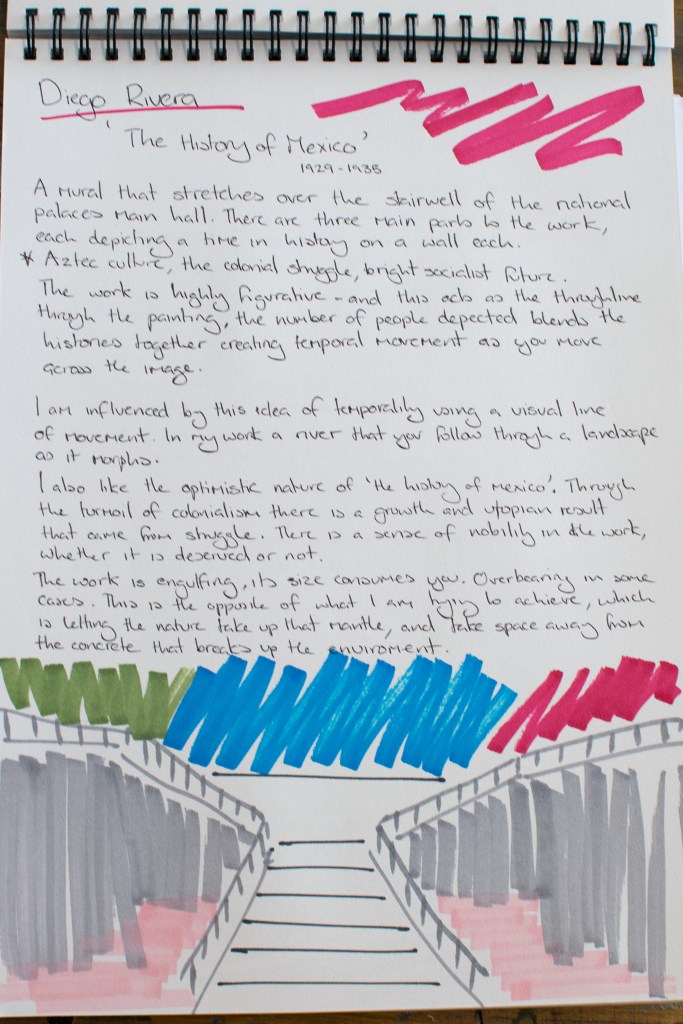 Diego Rivera
'The History of Mexico'
1929-1935
A mural that stretches over the stairwell of the national
palaces main hall. There are three main parts to the work,
each depicting a time in history on a wall each.
* Aztec culture, the colonial struggle, bright socialist future.
The work is highly figurative - and this acts as the throughline
through the painting, the number of people depected blends the
histories together creating temporal movement as you move
across the image.
I am influenced by this idea of temporality using a visual line
of movement. In my work a river that you follow through a landscape
as it morphs.
I also like the optimistic nature of 'the history of Mexico'. Through
the turmoil of colonialism there is a growth and utopian result
that came from struggle. There is a sense of nobility in the work,
whether it is deserved or not.
The work is engulfing, its size consumes you. Overbearing in some
cases. This is the opposite of what I am trying to achieve, which
is letting the nature take up that mantle, and take space away from
the concrete that breaks up the enviroment.